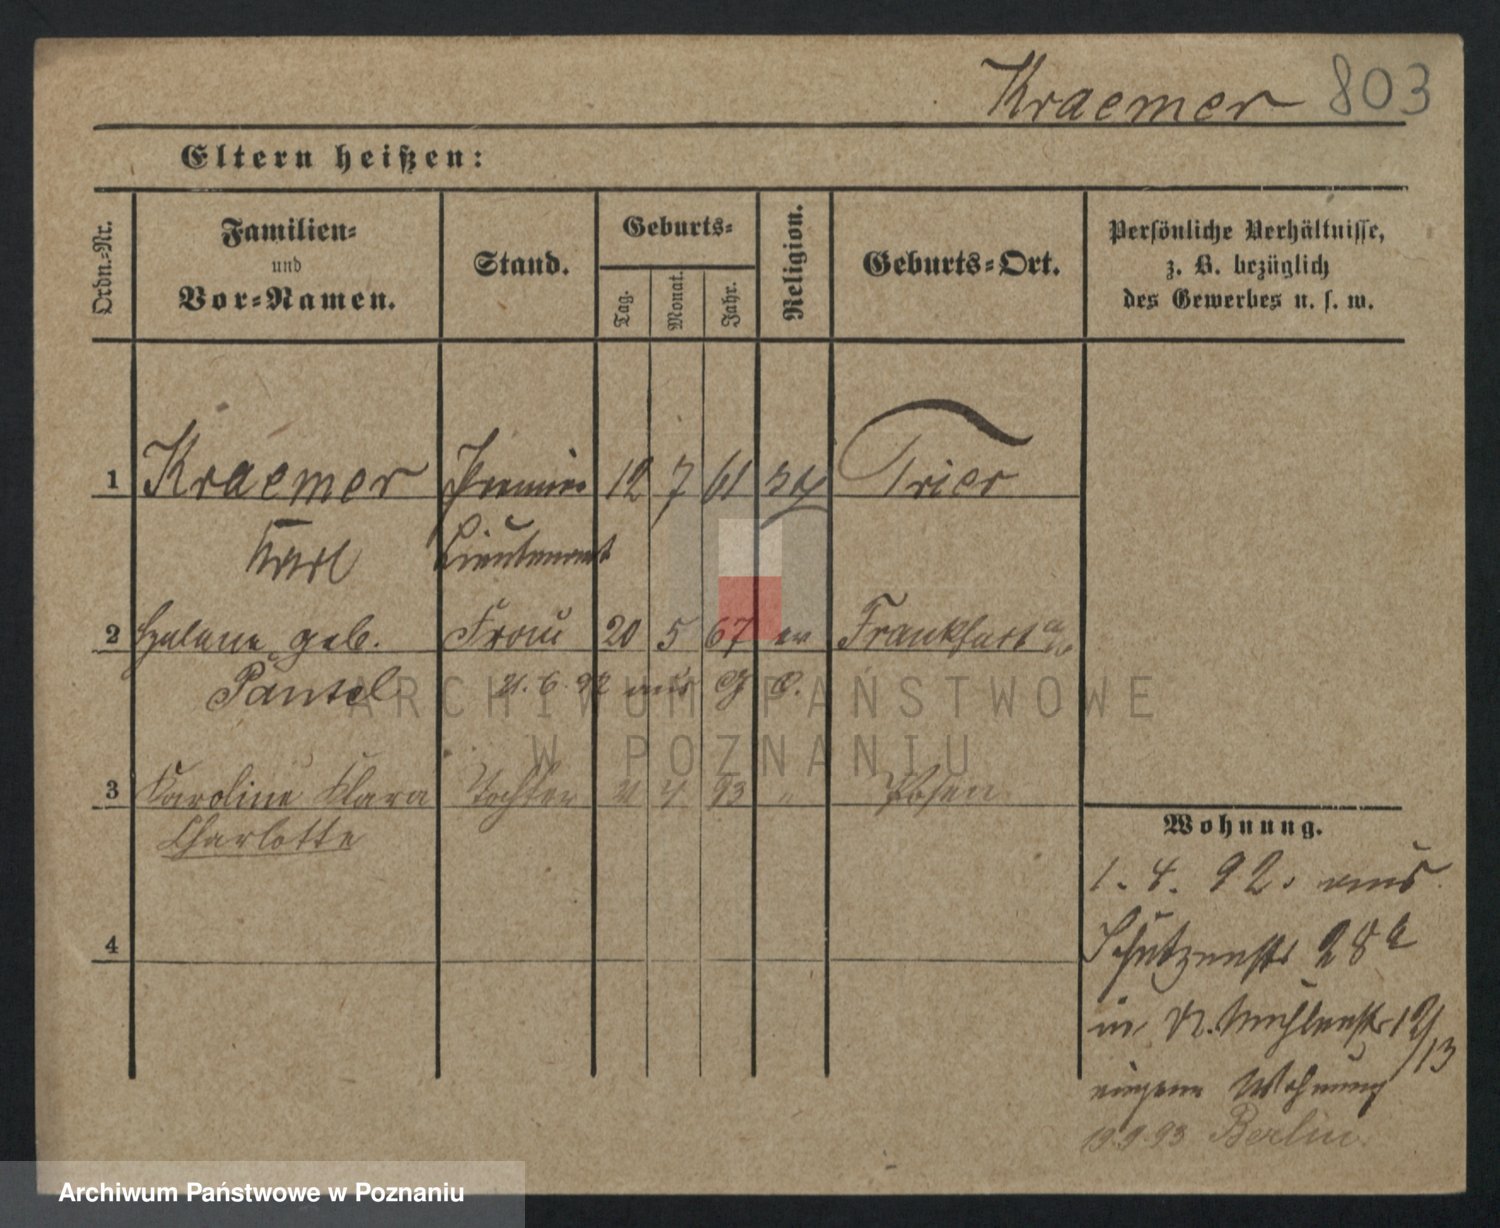 Kraemer 803
Eltern heißen:
Ordn.-Nr.
Familien-
und
Vor-Namen.
Stand.
Geburts-
Tag.
Monat.
Jahr.
Religion.
Geburts-Ort.
Persönliche Verhältnisse,
z. B. bezüglich
des Gewerbes u. s. w.
1 Kraemer Premier 12 7 61 Trier
Karl Lieutenant
2 Helene geb. Frau 20 5 67 ev Frankfurt
Pantel 21. 6. 92 aus
3 Karoline Klara Tochter 21 4 93 " Posen
Charlotte
4
Wohnung.
1. 4. 92. aus
Schützenstr 28a
in N. Mühlenstr 12/13
eigene Wohnung
19.9.93 Berlin.
ARCHIWUM PAŃSTWOWE
W POZNANIU
Archiwum Państwowe w Poznaniu